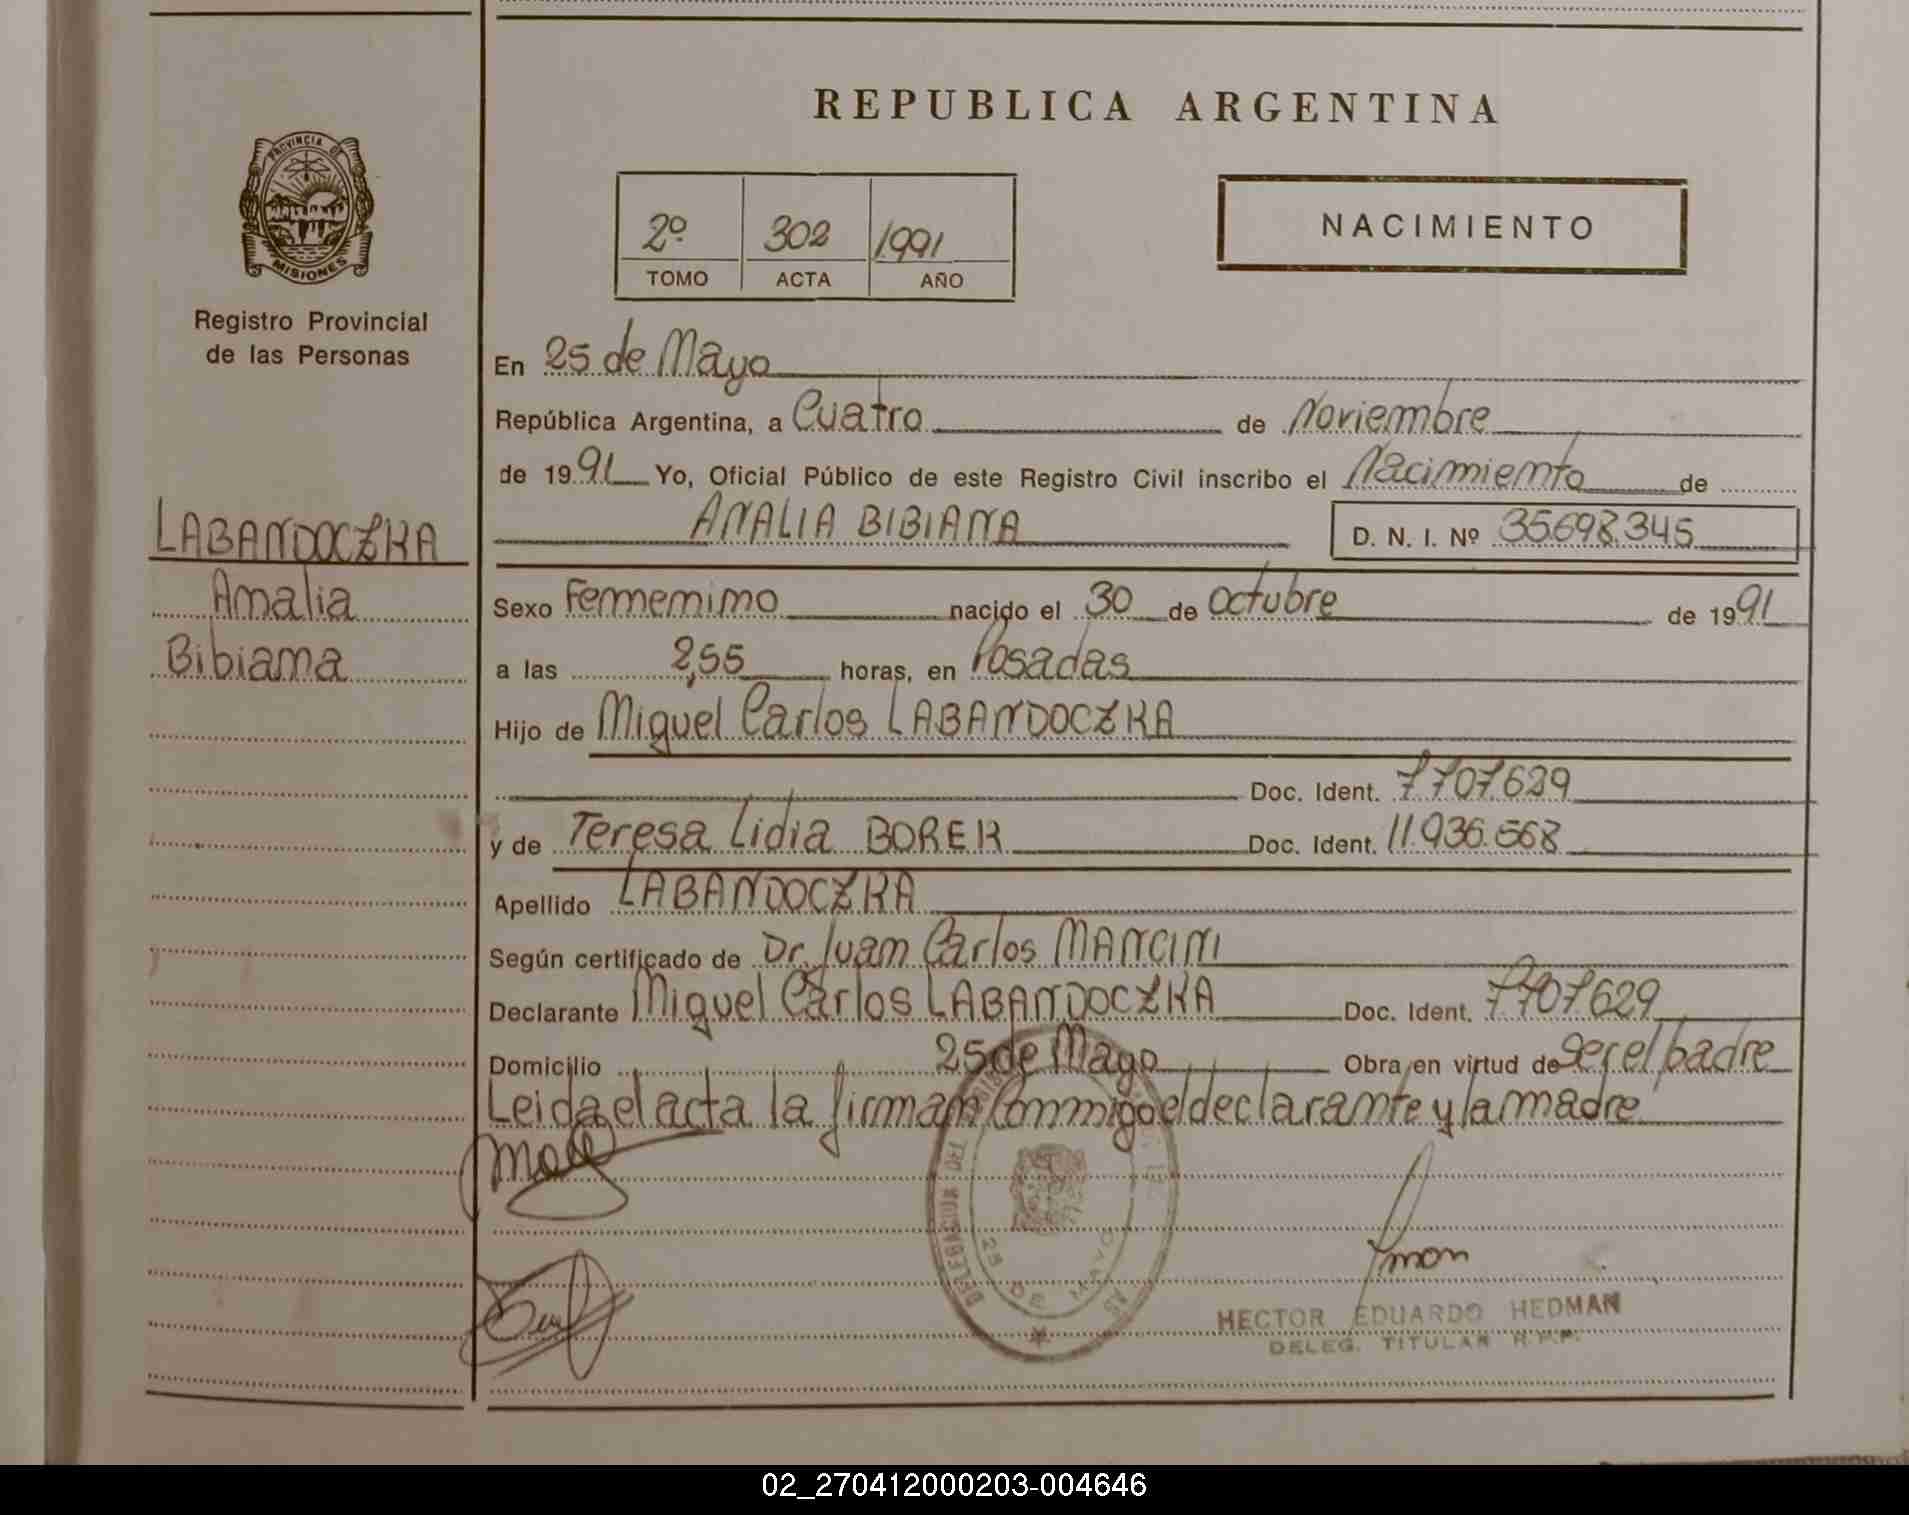 REPUBLICA ARGENTINA
PROVINCIA DE
MISIONES
Registro Provincial
de las Personas
2º 302 1991
TOMO ACTA AÑO
NACIMIENTO
En 25 de Mayo
República Argentina, a Cuatro de Noviembre
de 1991 Yo, Oficial Público de este Registro Civil inscribo el Nacimiento de
ANALIA BIBIANA D. N. I. Nº 35.698.345
LABANDOCZKA
Analia
Bibiana
Sexo Femenino nacido el 30 de octubre de 1991
a las 2,55 horas, en Posadas
Hijo de Miguel Carlos LABANDOCZKA
Doc. Ident. 7707.629
y de Teresa Lidia BORER Doc. Ident. 11.936.568
Apellido LABANDOCZKA
Según certificado de Dr. Juan Carlos MANCINI
Declarante Miguel Carlos LABANDOCZKA Doc. Ident. 7707629
Domicilio 25 de Mayo Obra en virtud de ser el padre
Leida el acta la firman Conmigo el declarante y la madre
25 DE MAYO
HECTOR EDUARDO HEDMAN
DELEG. TITULAR R.P.P.
02_270412000203-004646